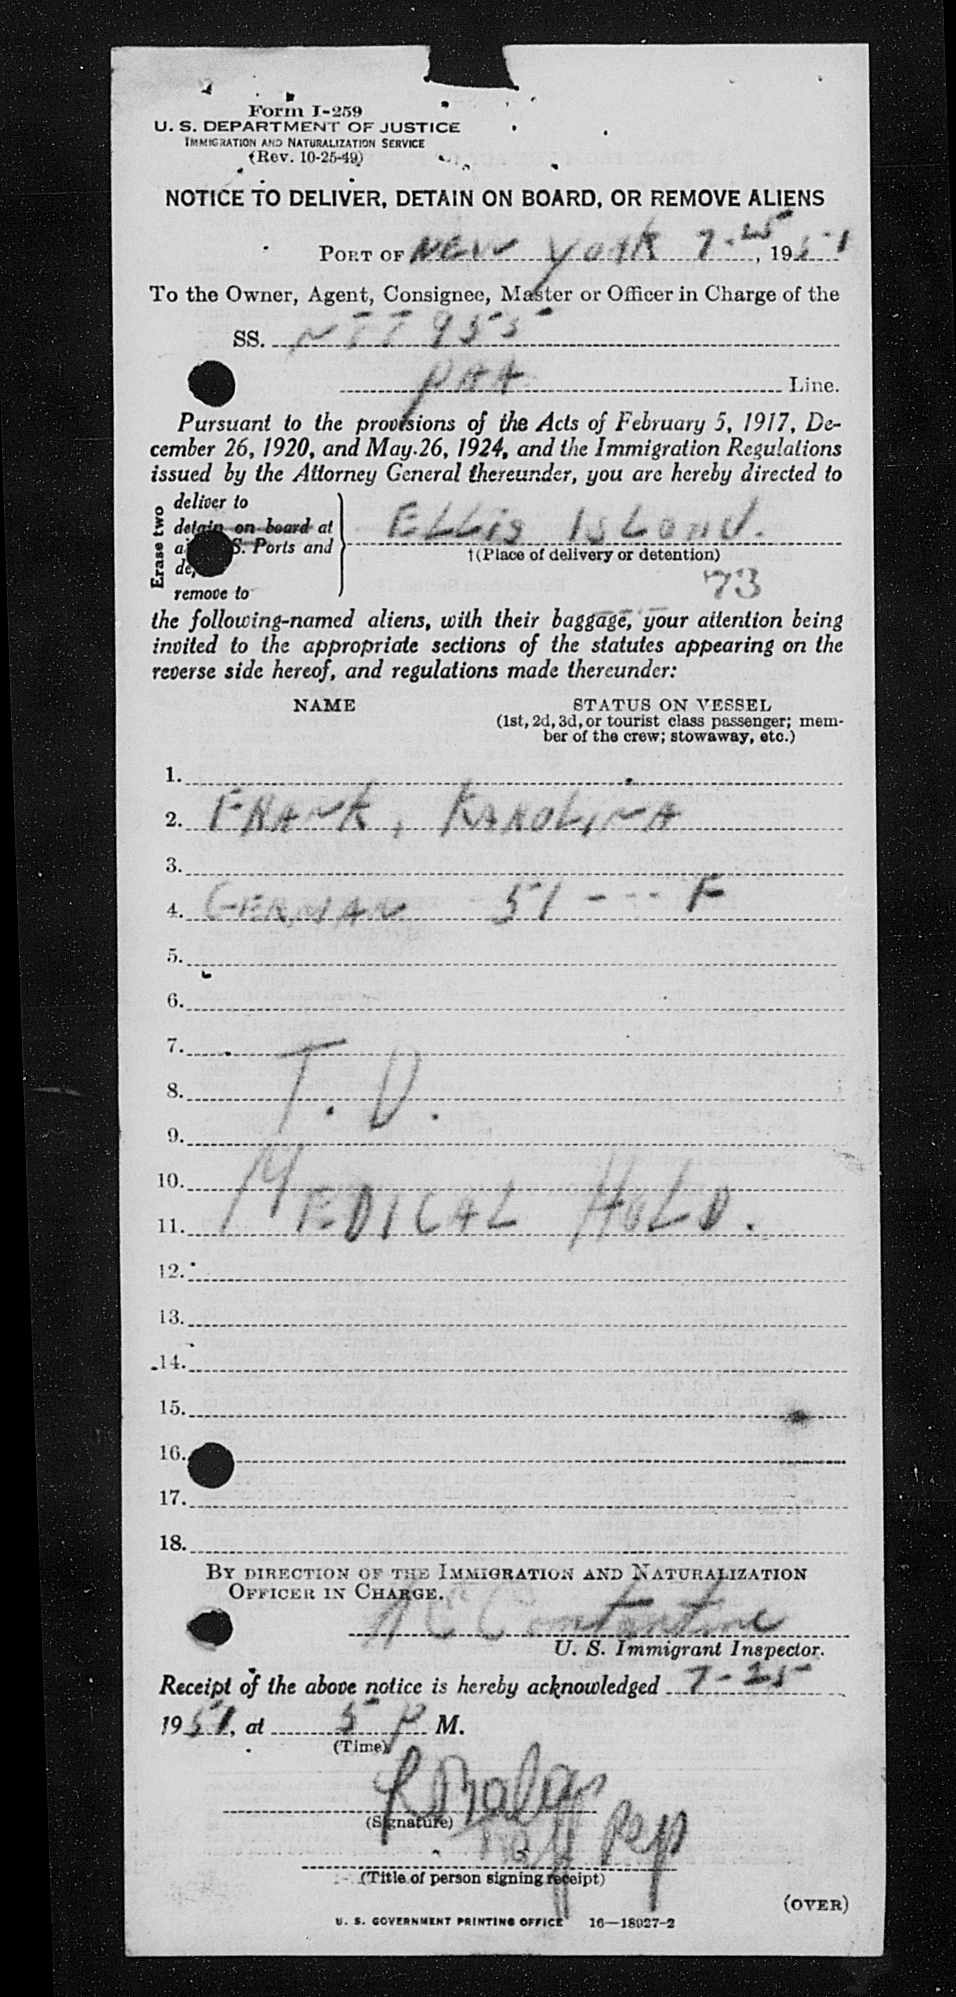 Form I-259
U. S. DEPARTMENT OF JUSTICE
IMMIGRATION AND NATURALIZATION SERVICE
(Rev. 10-25-49)
NOTICE TO DELIVER, DETAIN ON BOARD, OR REMOVE ALIENS
PORT OF NEW YORK 7-25, 1951
To the Owner, Agent, Consignee, Master or Officer in Charge of the
SS. 955
PAA Line.
Pursuant to the provisions of the Acts of February 5, 1917, De-
cember 26, 1920, and May 26, 1924, and the Immigration Regulations
issued by the Attorney General thereunder, you are hereby directed to
Erase two
deliver to
detain on board at
S. Ports and
remove to
ELLIS ISLAND.
†(Place of delivery or detention)
73
the following-named aliens, with their baggage, your attention being
invited to the appropriate sections of the statutes appearing on the
reverse side hereof, and regulations made thereunder:
NAME STATUS ON VESSEL
(1st, 2d, 3d, or tourist class passenger; mem-
ber of the crew; stowaway, etc.)
1.
2. FRANK, KAROLINA
3.
4. GERMAN 51 - - - F
5.
6.
7.
8. T. D.
9.
10.
11. MEDICAL HOLD.
12.
13.
14.
15.
16.
17.
18.
BY DIRECTION OF THE IMMIGRATION AND NATURALIZATION
OFFICER IN CHARGE.
U. S. Immigrant Inspector.
Receipt of the above notice is hereby acknowledged 7-25
1951, at 5 P M.
(Time)
(Signature)
(Title of person signing receipt)
(OVER)
U. S. GOVERNMENT PRINTING OFFICE 16—18027-2